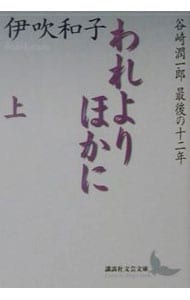 伊吹和子
われより
ほかに
谷崎潤一郎 最後の十二年
上
講談社文芸文庫